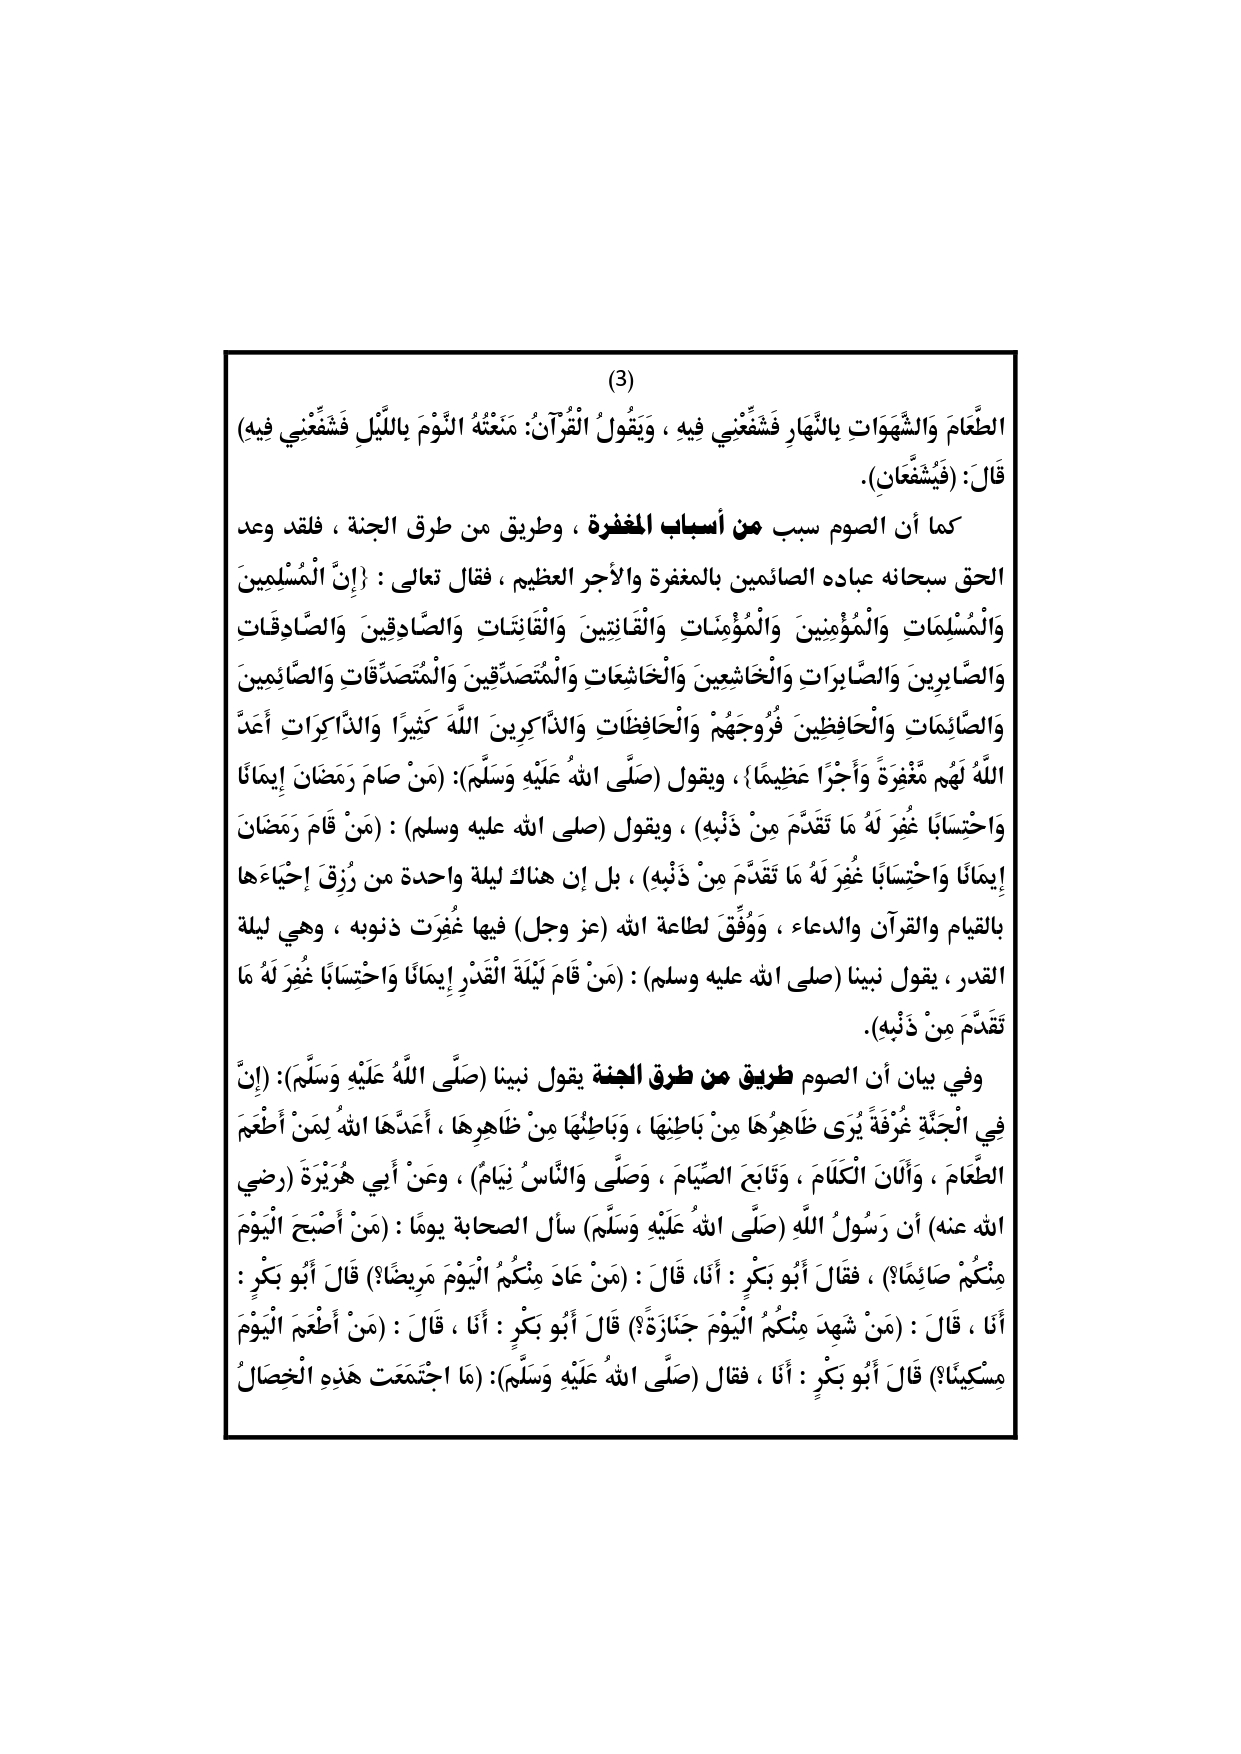 (3)
الطَّعَامَ وَالشَّهَوَاتِ بِالنَّهَارِ فَشَفِّعْنِي فِيهِ ، وَيَقُولُ الْقُرْآنُ: مَنَعْتُهُ النَّوْمَ بِاللَّيْلِ فَشَفِّعْنِي فِيهِ)
قَالَ: (فَيُشَفَّعَانِ).
كما أن الصوم سبب من أسباب المغفرة ، وطريق من طرق الجنة ، فلقد وعد
الحق سبحانه عباده الصائمين بالمغفرة والأجر العظيم ، فقال تعالى : {إِنَّ الْمُسْلِمِينَ
وَالْمُسْلِمَاتِ وَالْمُؤْمِنِينَ وَالْمُؤْمِنَاتِ وَالْقَانِتِينَ وَالْقَانِتَاتِ وَالصَّادِقِينَ وَالصَّادِقَاتِ
وَالصَّابِرِينَ وَالصَّابِرَاتِ وَالْخَاشِعِينَ وَالْخَاشِعَاتِ وَالْمُتَصَدِّقِينَ وَالْمُتَصَدِّقَاتِ وَالصَّائِمِينَ
وَالصَّائِمَاتِ وَالْحَافِظِينَ فُرُوجَهُمْ وَالْحَافِظَاتِ وَالذَّاكِرِينَ اللَّهَ كَثِيرًا وَالذَّاكِرَاتِ أَعَدَّ
اللَّهُ لَهُم مَّغْفِرَةً وَأَجْرًا عَظِيمًا}، ويقول (صَلَّى اللهُ عَلَيْهِ وَسَلَّمَ): (مَنْ صَامَ رَمَضَانَ إِيمَانًا
وَاحْتِسَابًا غُفِرَ لَهُ مَا تَقَدَّمَ مِنْ ذَنْبِهِ) ، ويقول (صلى الله عليه وسلم) : (مَنْ قَامَ رَمَضَانَ
إِيمَانًا وَاحْتِسَابًا غُفِرَ لَهُ مَا تَقَدَّمَ مِنْ ذَنْبِهِ) ، بل إن هناك ليلة واحدة من رُزِقَ إحْيَاءَها
بالقيام والقرآن والدعاء ، وَوُفِّقَ لطاعة الله (عز وجل) فيها غُفِرَت ذنوبه ، وهي ليلة
القدر ، يقول نبينا (صلى الله عليه وسلم) : (مَنْ قَامَ لَيْلَةَ الْقَدْرِ إِيمَانًا وَاحْتِسَابًا غُفِرَ لَهُ مَا
تَقَدَّمَ مِنْ ذَنْبِهِ).
وفي بيان أن الصوم طريق من طرق الجنة يقول نبينا (صَلَّى اللَّهُ عَلَيْهِ وَسَلَّمَ): (إِنَّ
فِي الْجَنَّةِ غُرْفَةً يُرَى ظَاهِرُهَا مِنْ بَاطِنِهَا ، وَبَاطِنُهَا مِنْ ظَاهِرِهَا ، أَعَدَّهَا اللهُ لِمَنْ أَطْعَمَ
الطَّعَامَ ، وَأَلَانَ الْكَلَامَ ، وَتَابَعَ الصِّيَامَ ، وَصَلَّى وَالنَّاسُ نِيَامٌ) ، وعَنْ أَبِي هُرَيْرَةَ (رضي
الله عنه) أن رَسُولُ اللَّهِ (صَلَّى اللهُ عَلَيْهِ وَسَلَّمَ) سأل الصحابة يومًا : (مَنْ أَصْبَحَ الْيَوْمَ
مِنْكُمْ صَائِمًا؟) ، فقَالَ أَبُو بَكْرٍ : أَنَا، قَالَ : (مَنْ عَادَ مِنْكُمُ الْيَوْمَ مَرِيضًا؟) قَالَ أَبُو بَكْرٍ :
أَنَا ، قَالَ : (مَنْ شَهِدَ مِنْكُمُ الْيَوْمَ جَنَازَةً؟) قَالَ أَبُو بَكْرٍ : أَنَا ، قَالَ : (مَنْ أَطْعَمَ الْيَوْمَ
مِسْكِينًا؟) قَالَ أَبُو بَكْرٍ : أَنَا ، فقال (صَلَّى اللهُ عَلَيْهِ وَسَلَّمَ): (مَا اجْتَمَعَت هَذِهِ الْخِصَالُ